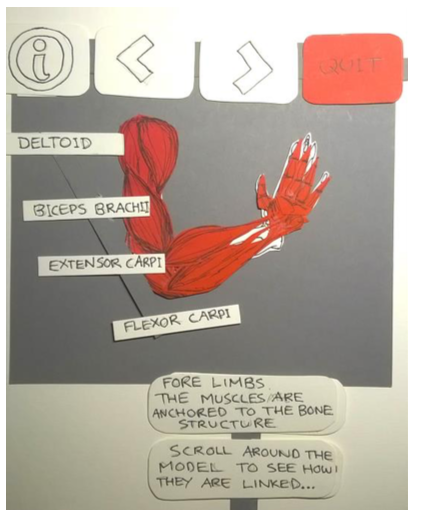 i
QUIT
DELTOID
BICEPS BRACHII
EXTENSOR CARPI
FLEXOR CARPI
FORE LIMBS.
THE MUSCLES ARE
ANCHORED TO THE BONE
STRUCTURE
SCROLL AROUND THE
MODEL TO SEE HOW
THEY ARE LINKED...